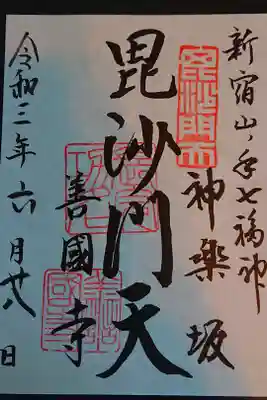 新宿山ノ手七福神
神樂坂
毘沙門天
毘沙門天
善國寺
令和三年六月廿八日